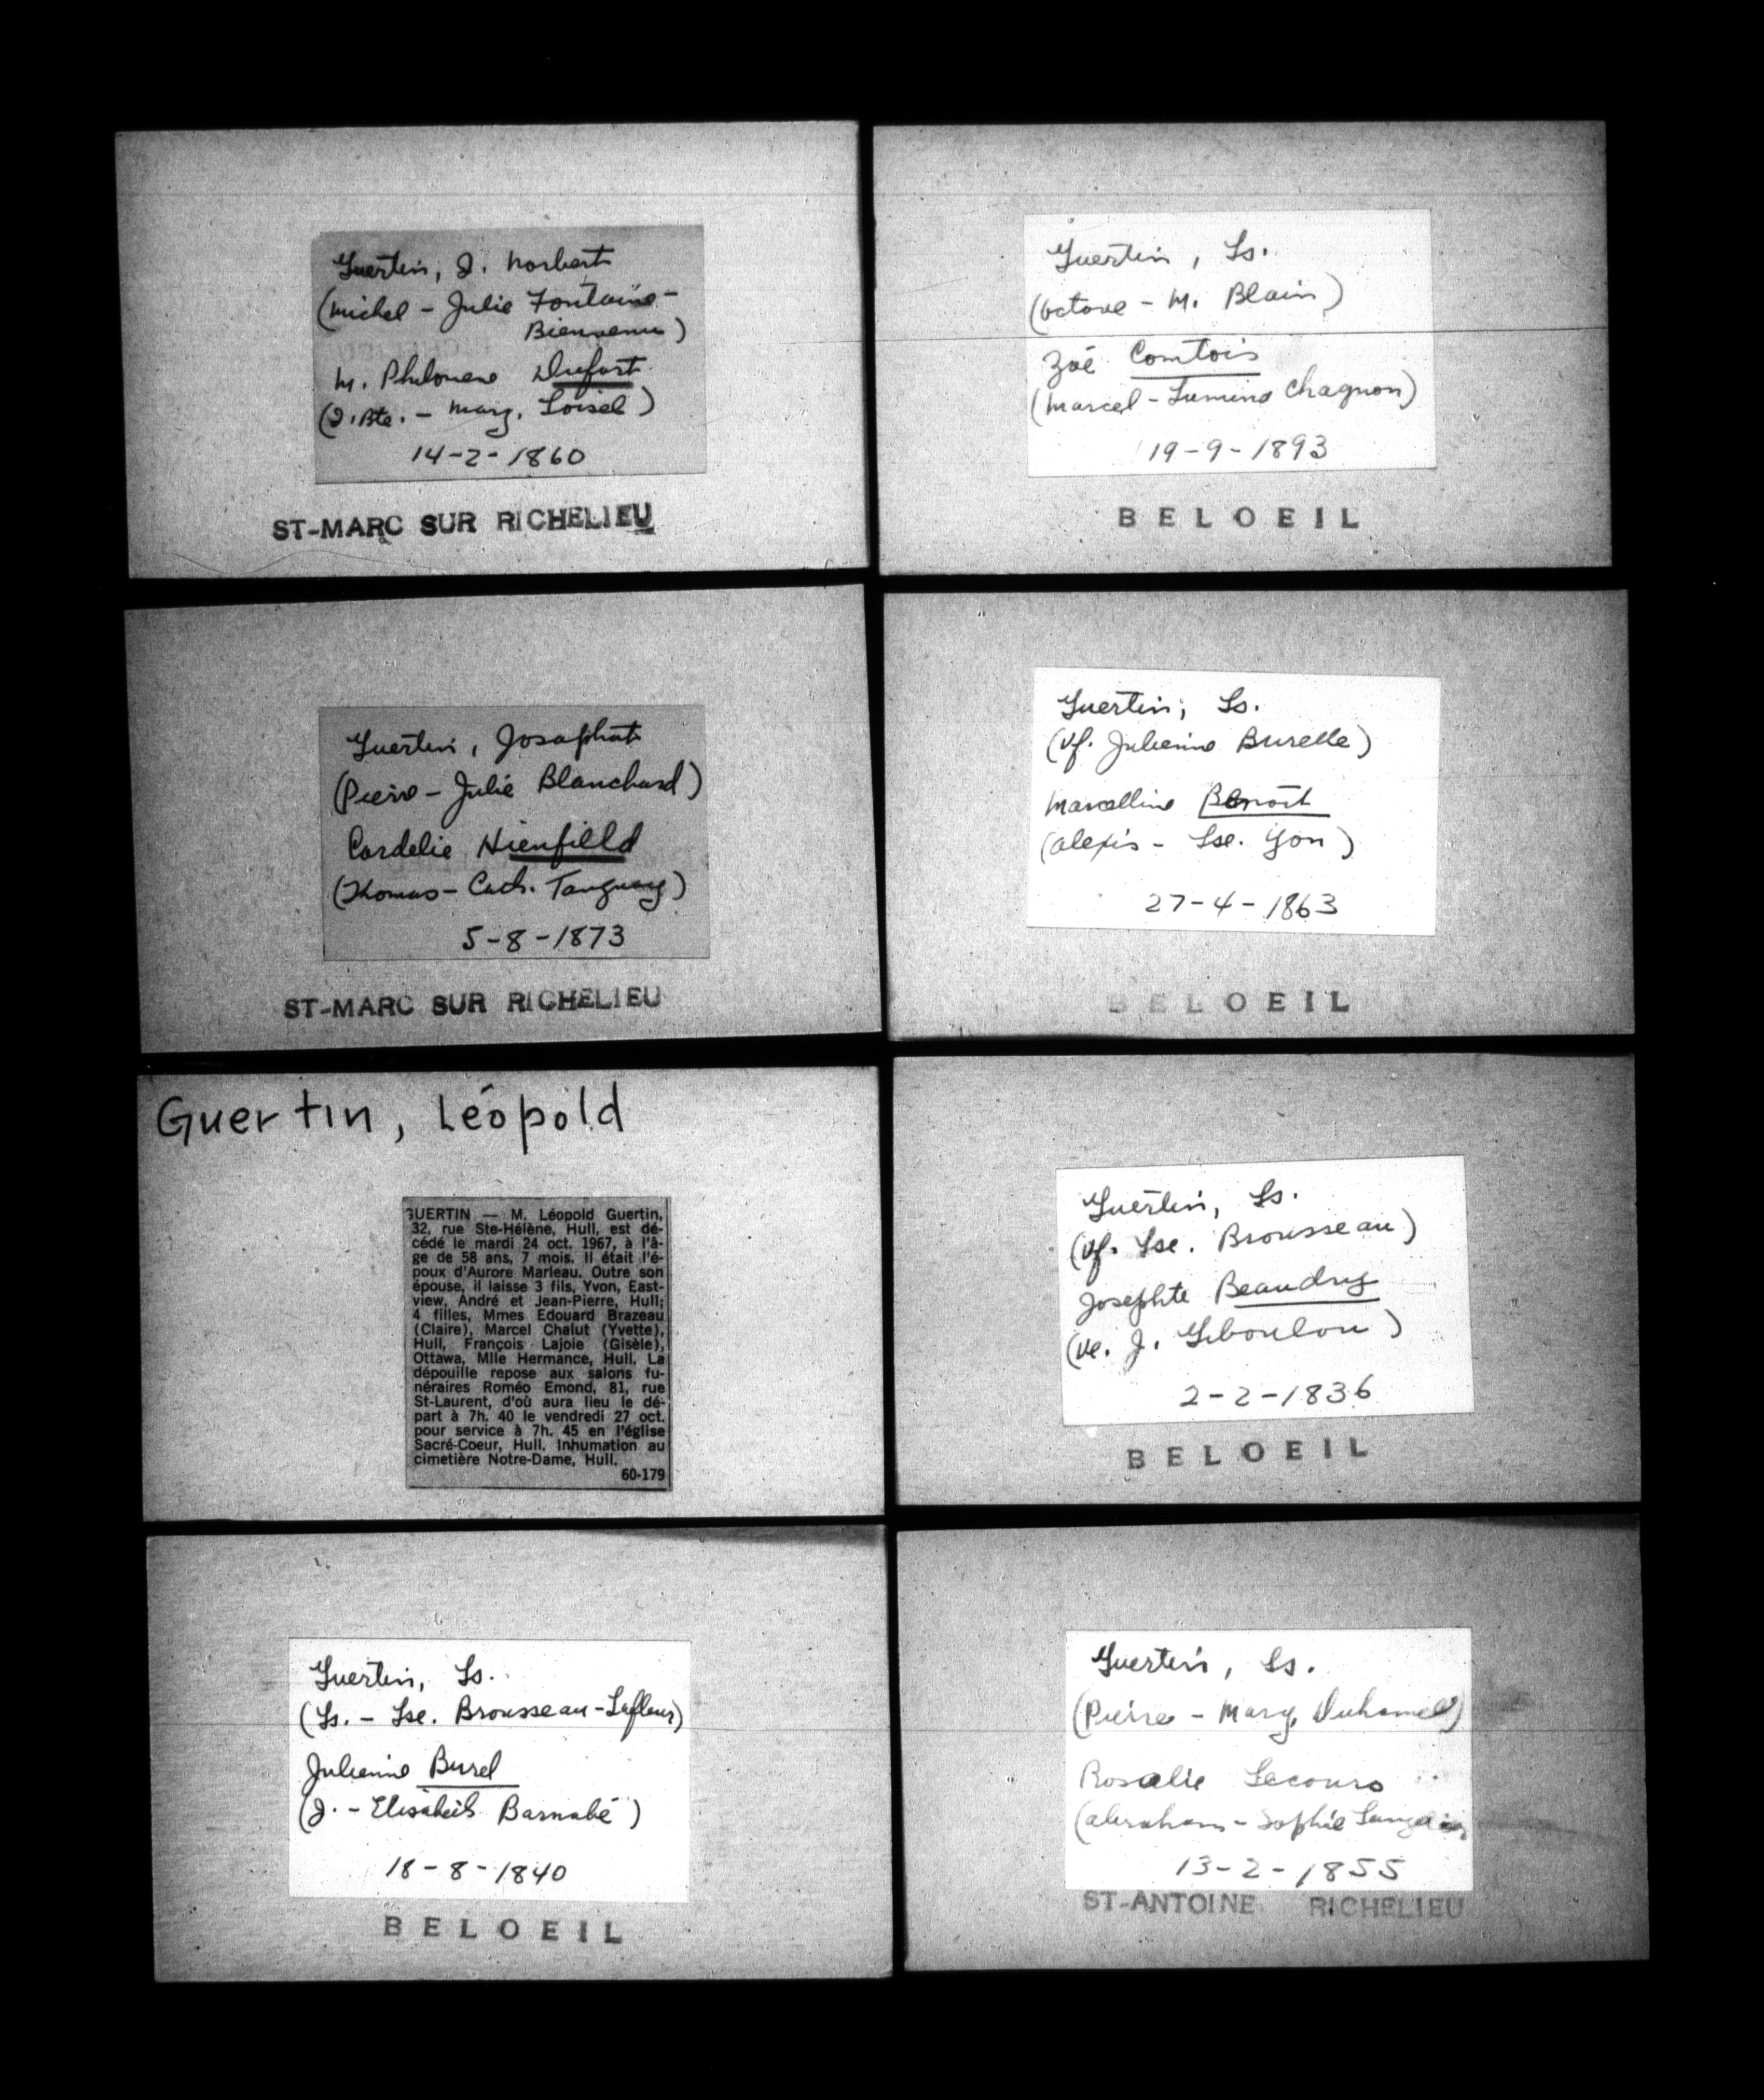 Guertin, J. Norbert
(Michel - Julie Fontaine-
Bienvenu)
M. Philomène Dufort
(J. Bte. - Marg. Loisel)
14-2-1860
ST-MARC SUR RICHELIEU
Guertin, Josaphat
(Pierre - Julie Blanchard)
Cordelie Hienfilld
(Thomas - Cath. Tanguay)
5-8-1873
ST-MARC SUR RICHELIEU
Guertin, Léopold
GUERTIN — M. Léopold Guertin,
32, rue Ste-Hélène, Hull, est dé-
cédé le mardi 24 oct. 1967, à l'â-
ge de 58 ans, 7 mois. Il était l'é-
poux d'Aurore Marleau. Outre son
épouse, il laisse 3 fils, Yvon, East-
view, André et Jean-Pierre, Hull;
4 filles, Mmes Edouard Brazeau
(Claire), Marcel Chalut (Yvette),
Hull, François Lajoie (Gisèle),
Ottawa, Mlle Hermance, Hull. La
dépouille repose aux salons fu-
néraires Roméo Emond, 81, rue
St-Laurent, d'où aura lieu le dé-
part à 7h. 40 le vendredi 27 oct.
pour service à 7h. 45 en l'église
Sacré-Coeur, Hull. Inhumation au
cimetière Notre-Dame, Hull.
60-179
Guertin, Ls.
(Ls. - Lse. Brousseau-Lafleur)
Julienne Burel
(J. - Elisabeth Barnabé)
18-8-1840
BELOEIL
Guertin, Ls.
(Octave - M. Blain)
Zoé Comtois
(Marcel - Lumina Chagnon)
19-9-1893
BELOEIL
Guertin, Ls.
(Vf. Julienne Burelle)
Marcelline Benoit
(Alexis - Lse. Yon)
27-4-1863
BELOEIL
Guertin, Ls.
(Vf. Lse. Brousseau)
Josephte Beaudry
(Ve. J. Giboulou)
2-2-1836
BELOEIL
Guertin, Ls.
(Pierre - Marg. Duhamel)
Rosalie Lecours
(Abraham - Sophie
13-2-1855
ST-ANTOINE RICHELIEU